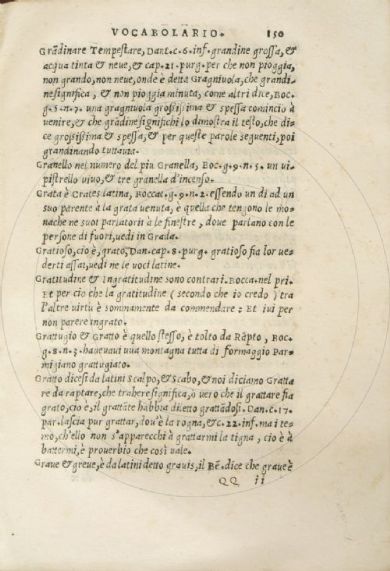 VOCABOLARIO. 150
Grādinare Tempestare, Dant.c.6.inf.grandine grossa, &
acqua tinta & neue, & cap.21.purg.per che non pioggia,
non grando, non neue, onde è detta Gragniuola, che grandi-
ne significa, & non pioggia minuta, come altri dice, Boc.
g.5.n.7. una gragniuola grossissima & spessa comincio à
uenire, & che grādine significhi lo dimostra il testo, che di-
ce grossissima & spessa, & per queste parole seguenti, poi
grandinando tuttauia.
Granello nel numero del piu Granella, Boc.g.9.n.5. un ui-
pistrello uiuo, & tre granella d'incenso.
Grata è Crates latina, Boccac.g.9.n.2.essendo un di ad un
suo parente à la grata uenuta, è quella che tengono le mo-
nache ne suoi parlatorii à le finestre, doue parlano con le
persone di fuori, uedi in Grada.
Gratioso, cio è, grato, Dan.cap.8.purg. gratioso fia lor ue-
derti assai, uedi ne le uoci latine.
Gratitudine & ingratitudine sono contrari. Bocca.nel pri.
Et per cio che la gratitudine (secondo che io credo) tra
l'altre uirtù è sommamente da commendare: Et iui per
non parere ingrato.
Grattugio & Gratto è quello stesso, è tolto da Rāpto, Boc.
g.8.n.3.haueuaui una montagna tutta di formaggio Par-
migiano grattugiato.
Gratto dicesi da latini Scalpo, & Scabo, & noi diciamo Gratta
re da raptare, che trahere significa, ò uero che il grattare fia
grato, cio è, il grattāte habbia diletto grattādosi. Dan.c.17.
par.lascia pur grattar, dou'è la rogna, & c.22.inf.ma i te-
mo, ch'ello non s'apparecchi à grattarmi la tigna, cio è à
battermi, è prouerbio che così uale.
Graue & greue, è da latini detto grauis, il Bē. dice che graue è
QQ ii